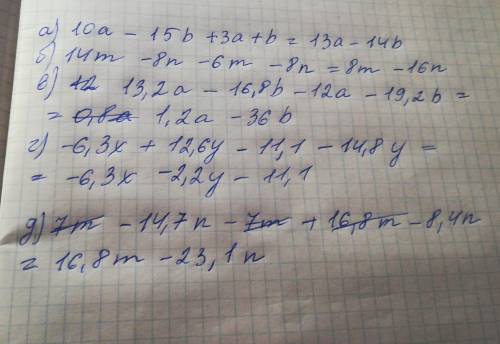 а) 10a - 15b + 3a + b = 13a - 14b
б) 14m - 8n - 6m - 8n = 8m - 16n
в) 12 13,2a - 16,8b - 12a - 19,2b =
= 0,8a 1,2a - 36b
г) -6,3x + 12,6y - 11,1 - 14,8y =
= -6,3x - 2,2y - 11,1
д) 7m - 14,7n - 7m + 16,8m - 8,4n
= 16,8m - 23,1n